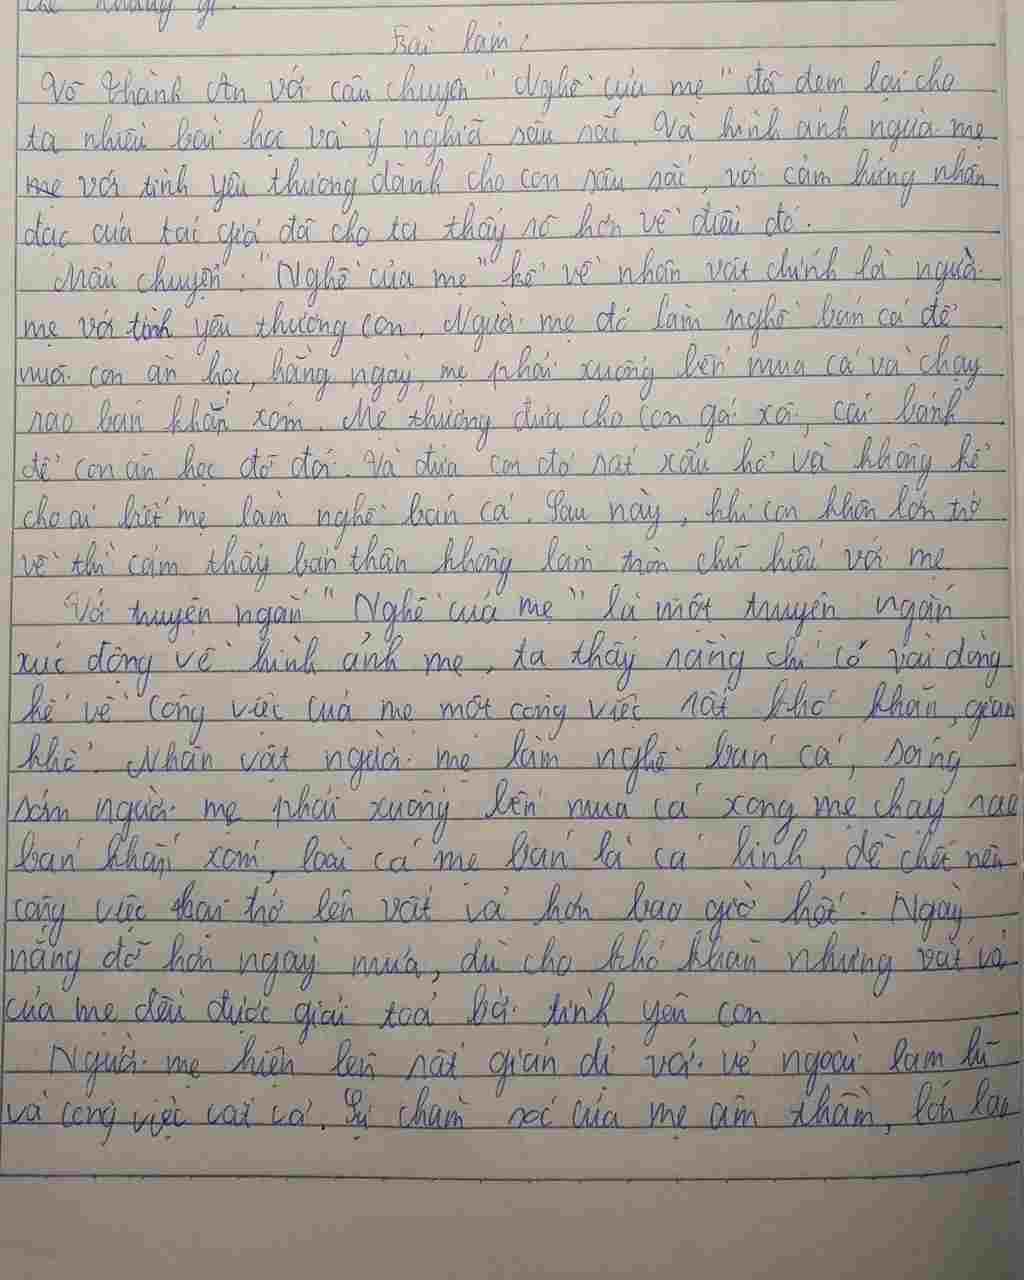 Bài làm:
Võ Thành An với câu chuyện "Nghề của mẹ" đã đem lại cho
ta nhiều bài học và ý nghĩa sâu sắc. Và hình ảnh người mẹ
mẹ với tình yêu thương dành cho con sâu sắc, với cảm hứng nhân
đạc của tác giả đã cho ta thấy rõ hơn về điều đó.
Mẩu chuyện: "Nghề của mẹ" kể về nhân vật chính là người
mẹ với tình yêu thương con. Người mẹ đó làm nghề bán cá để
nuôi con ăn học, hằng ngày, mẹ phải xuống bến mua cá và chạy
rao bán khắp xóm. Mẹ thường đưa cho con gói xôi, cái bánh
để con ăn học đỡ đói. Và đứa con đó rất xấu hổ và không kể
cho ai biết mẹ làm nghề bán cá. Sau này, khi con khôn lớn trở
về thì cảm thấy bản thân không làm tròn chữ hiếu với mẹ
Với truyện ngắn "Nghề của mẹ" là một truyện ngắn
xúc động về hình ảnh mẹ, ta thấy rằng chỉ có vài dòng
kể về công việc của mẹ một công việc rất khó khăn, gian
khổ. Nhân vật người mẹ làm nghề bán cá, sáng
sớm người mẹ phải xuống bến mua cá xong mẹ chạy rao
bán khắp xóm, loài cá mẹ bán là cá linh, dễ chết nên
công việc trở lên vất vả hơn bao giờ hết. Ngày
nắng đỡ hơn ngày mưa, dù cho khó khăn nhưng vất vả
của mẹ đều được giải toả bởi tình yêu con
Người mẹ hiện lên rất giản dị với vẻ ngoài lam lũ
và công việc vất vả. Sự chăm sóc của mẹ âm thầm, lớn lao